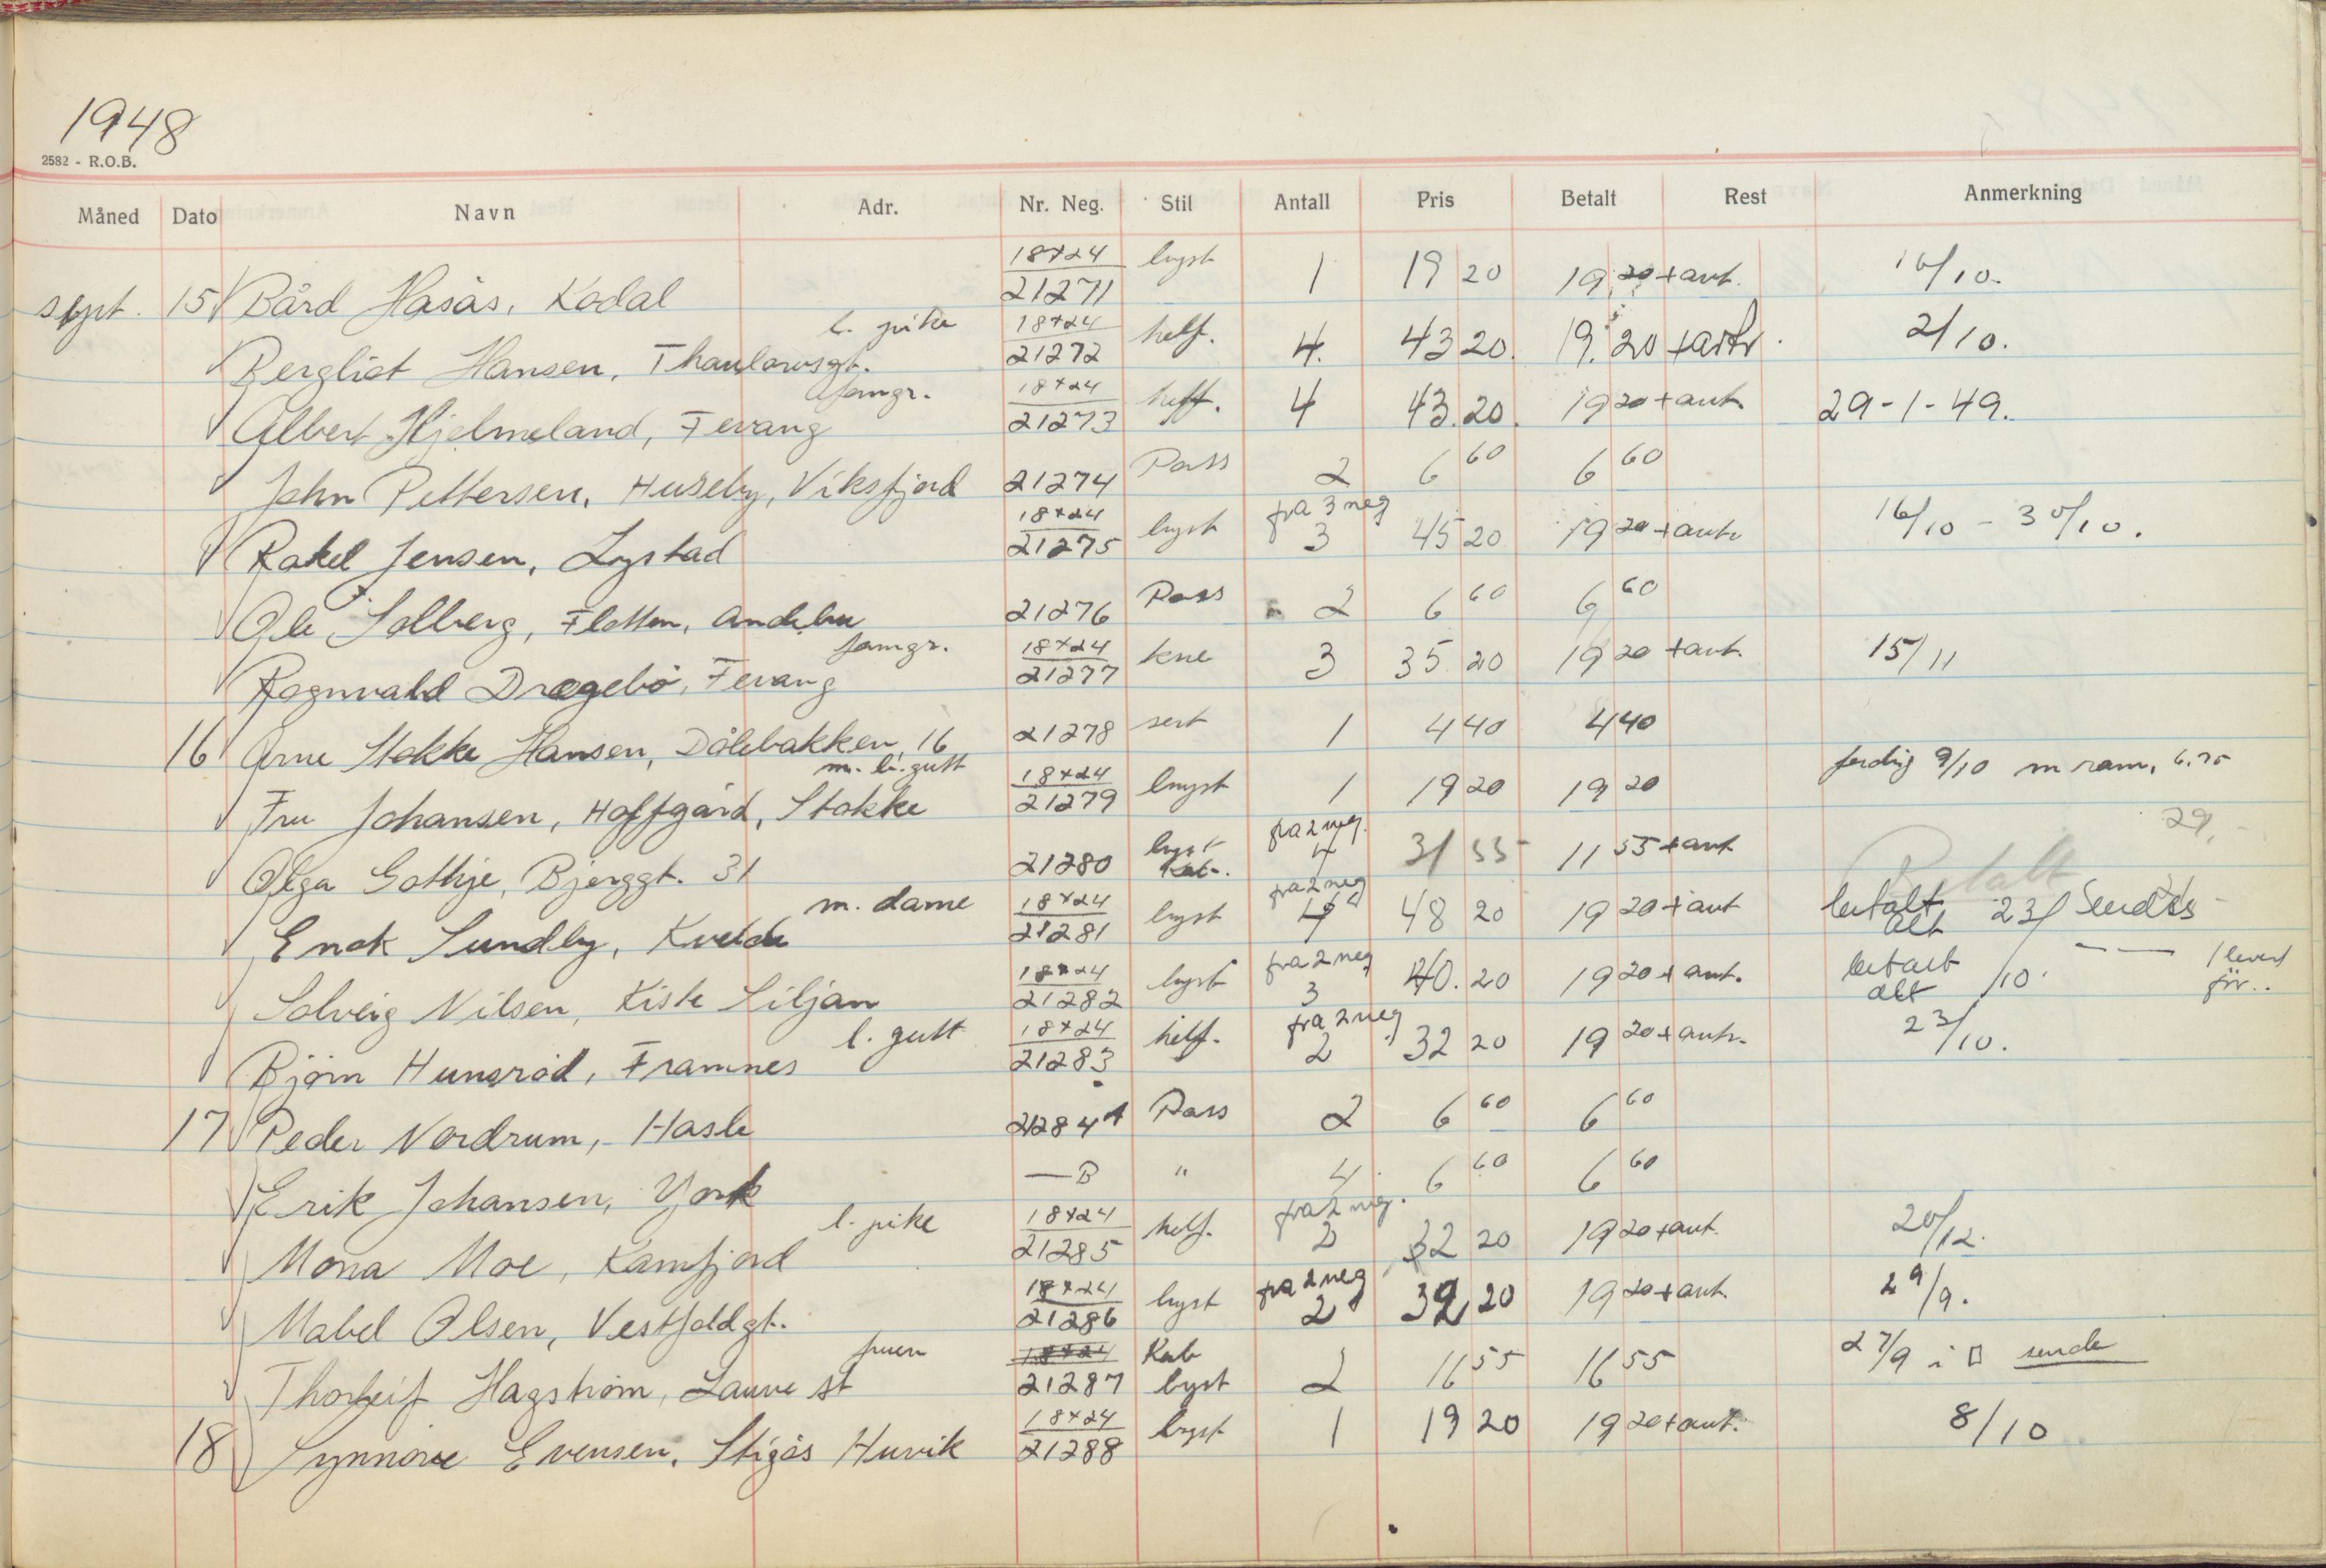 1948
2582 - R.O.B.
Måned Dato Navn Adr. Nr. Neg. Stil Antall Pris Betalt Rest Anmerkning
sept. 15 Bård Hasås, Kodal 18x24 21271 bryst 1 19 20 19 20 + ant. 16/10.
Bergliot Hansen, Thaulowsgt. l. pike 18x24 21272 helf. 4. 43 20. 19. 20 + 2/10.
Albert Hjelmeland, Fevang famgr. 18x24 21273 helf. 4 43.20. 19 20 + ant. 29-1-49.
John Pettersen, Huseby, Viksfjord 21274 Pass 2 6 60 6 60
Rakel Jensen, Lystad 18x24 21275 bryst fra 3 neg 3 45 20 19 20 + ant. 16/10 - 30/10.
Ole Solberg, Flåtten, Andebu 21276 Pass 2 6 60 6 60
Ragnvald Dragebø, Fevang famgr. 18x24 21277 kne 3 35 20 19 20 + ant. 15/11
16 Arne Stokke Hansen, Dölebakken, 16 21278 sert 1 4 40 4 40
Fru Johansen, Hoffgård, Stokke m. li. gutt 18x24 21279 bryst 1 19 20 19 20 ferdig 9/10 m ram, 6.75
29,-
Olga Gathje, Bjerggt. 31 21280 bryst Kab. fra 2 neg. 4 31 55 11 55 + ant Betalt
Enok Sundby, Kvelde m. dame 18x24 21281 bryst fra 2 neg 4 48 20 19 20 + ant betalt alt 23/ Sendes
Solveig Nilsen, Kiste Siljan 18x24 21282 bryst fra 2 neg 3 40.20 19 20 + ant. betalt alt /10. — — 1 levert för..
Björn Hunsröd, Framnes l. gutt 18x24 21283 helf. fra 2 neg 2 32 20 19 20 + ant. 23/10.
17 Peder Nordrum, Hasle 21284 A Pass 2 6 60 6 60
Erik Johansen, York — B " 4 6 60 6 60
Mona Moe, Kamfjord l. pike 18x24 21285 helf. fra 2 neg. 2 32 20 19 20 + ant. 20/12.
Mabel Olsen, Vestfoldgt. 18x24 21286 bryst fra 2 neg 2 32 20 19 20 + ant. 29/9.
Thorleif Hagström, Lauve st fruen 18x24 21287 Kab bryst 2 11 55 11 55 27/9 i □ sende
18 Synnöve Evensen, Stigås Huvik 18x24 21288 bryst 1 19 20 19 20 + ant. 8/10